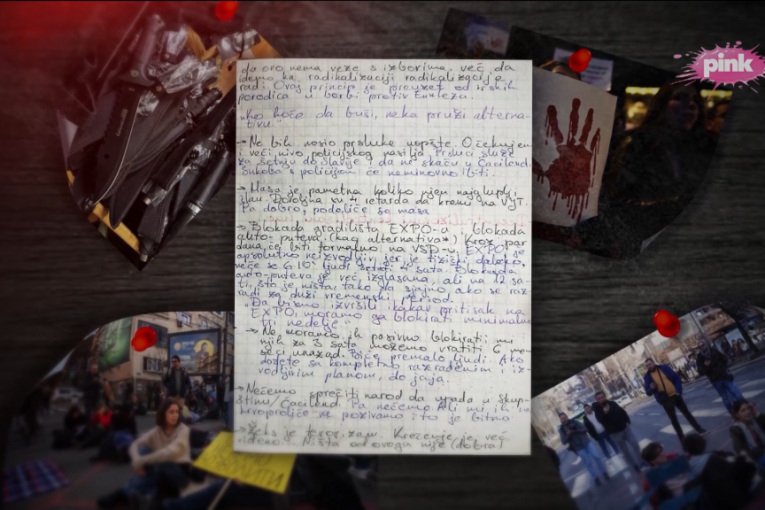 da ovo nema veze s izborima, već da
idemo ka radikalizaciji radikalizacije
radi. Ovaj princip je preuzet od irskih
porodica u borbi protiv Engleza.
"Ko hoće da buši, neka pruži alterna-
tivu."
→ Ne bih nosio prsluke uopšte. Očekujem
i veći nivo policijskog nasilja. Prsluci služe
za šetnju do Slavije i da ne skaču u Ćaciland.
Sukoba s policijom će neminovno biti.
→ Masa je pametna koliko njen najgluplji
član. Dovoljna su 4 retarda da krenu na VJT.
Pa dobro, podeliće se masa
→ Blokada gradilišta EXPO-a / blokada
auto-puteva (kao alternativa*) Kroz par
dana će biti formalno na VSD-u. EXPO je
apsolutno neizvodljiv jer je fizički daleko,
neće se 6·10⁵ ljudi šetati 4 sata. Blokada
auto-puteva je već izglasana, ali na 12 sa-
ti, što je ništa. Tako da sjajno, ako se raz-
radi za duži vremenski period.
"Da bismo izvršili ikakav pritisak na
EXPO, moramo ga blokirati minimalno
tri nedelje"
→ Ne moramo ih pasivno blokirati: mi
njih za 3 sata možemo vratiti 6 me-
seci unazad. Biće premalo ljudi. Ako
dođete sa kompletno razrađenim i iz-
vodljivim planom, do jaja.
→ Nećemo sprečiti narod da upada u skup-
štinu/Ćaciland. Pa nećemo. Ali mi ih na
krvoproliće ne pozivamo i to je bitno
je terorizam. Krečenje je već
viđeno. Ništa od ovoga nije (dobra)
pink